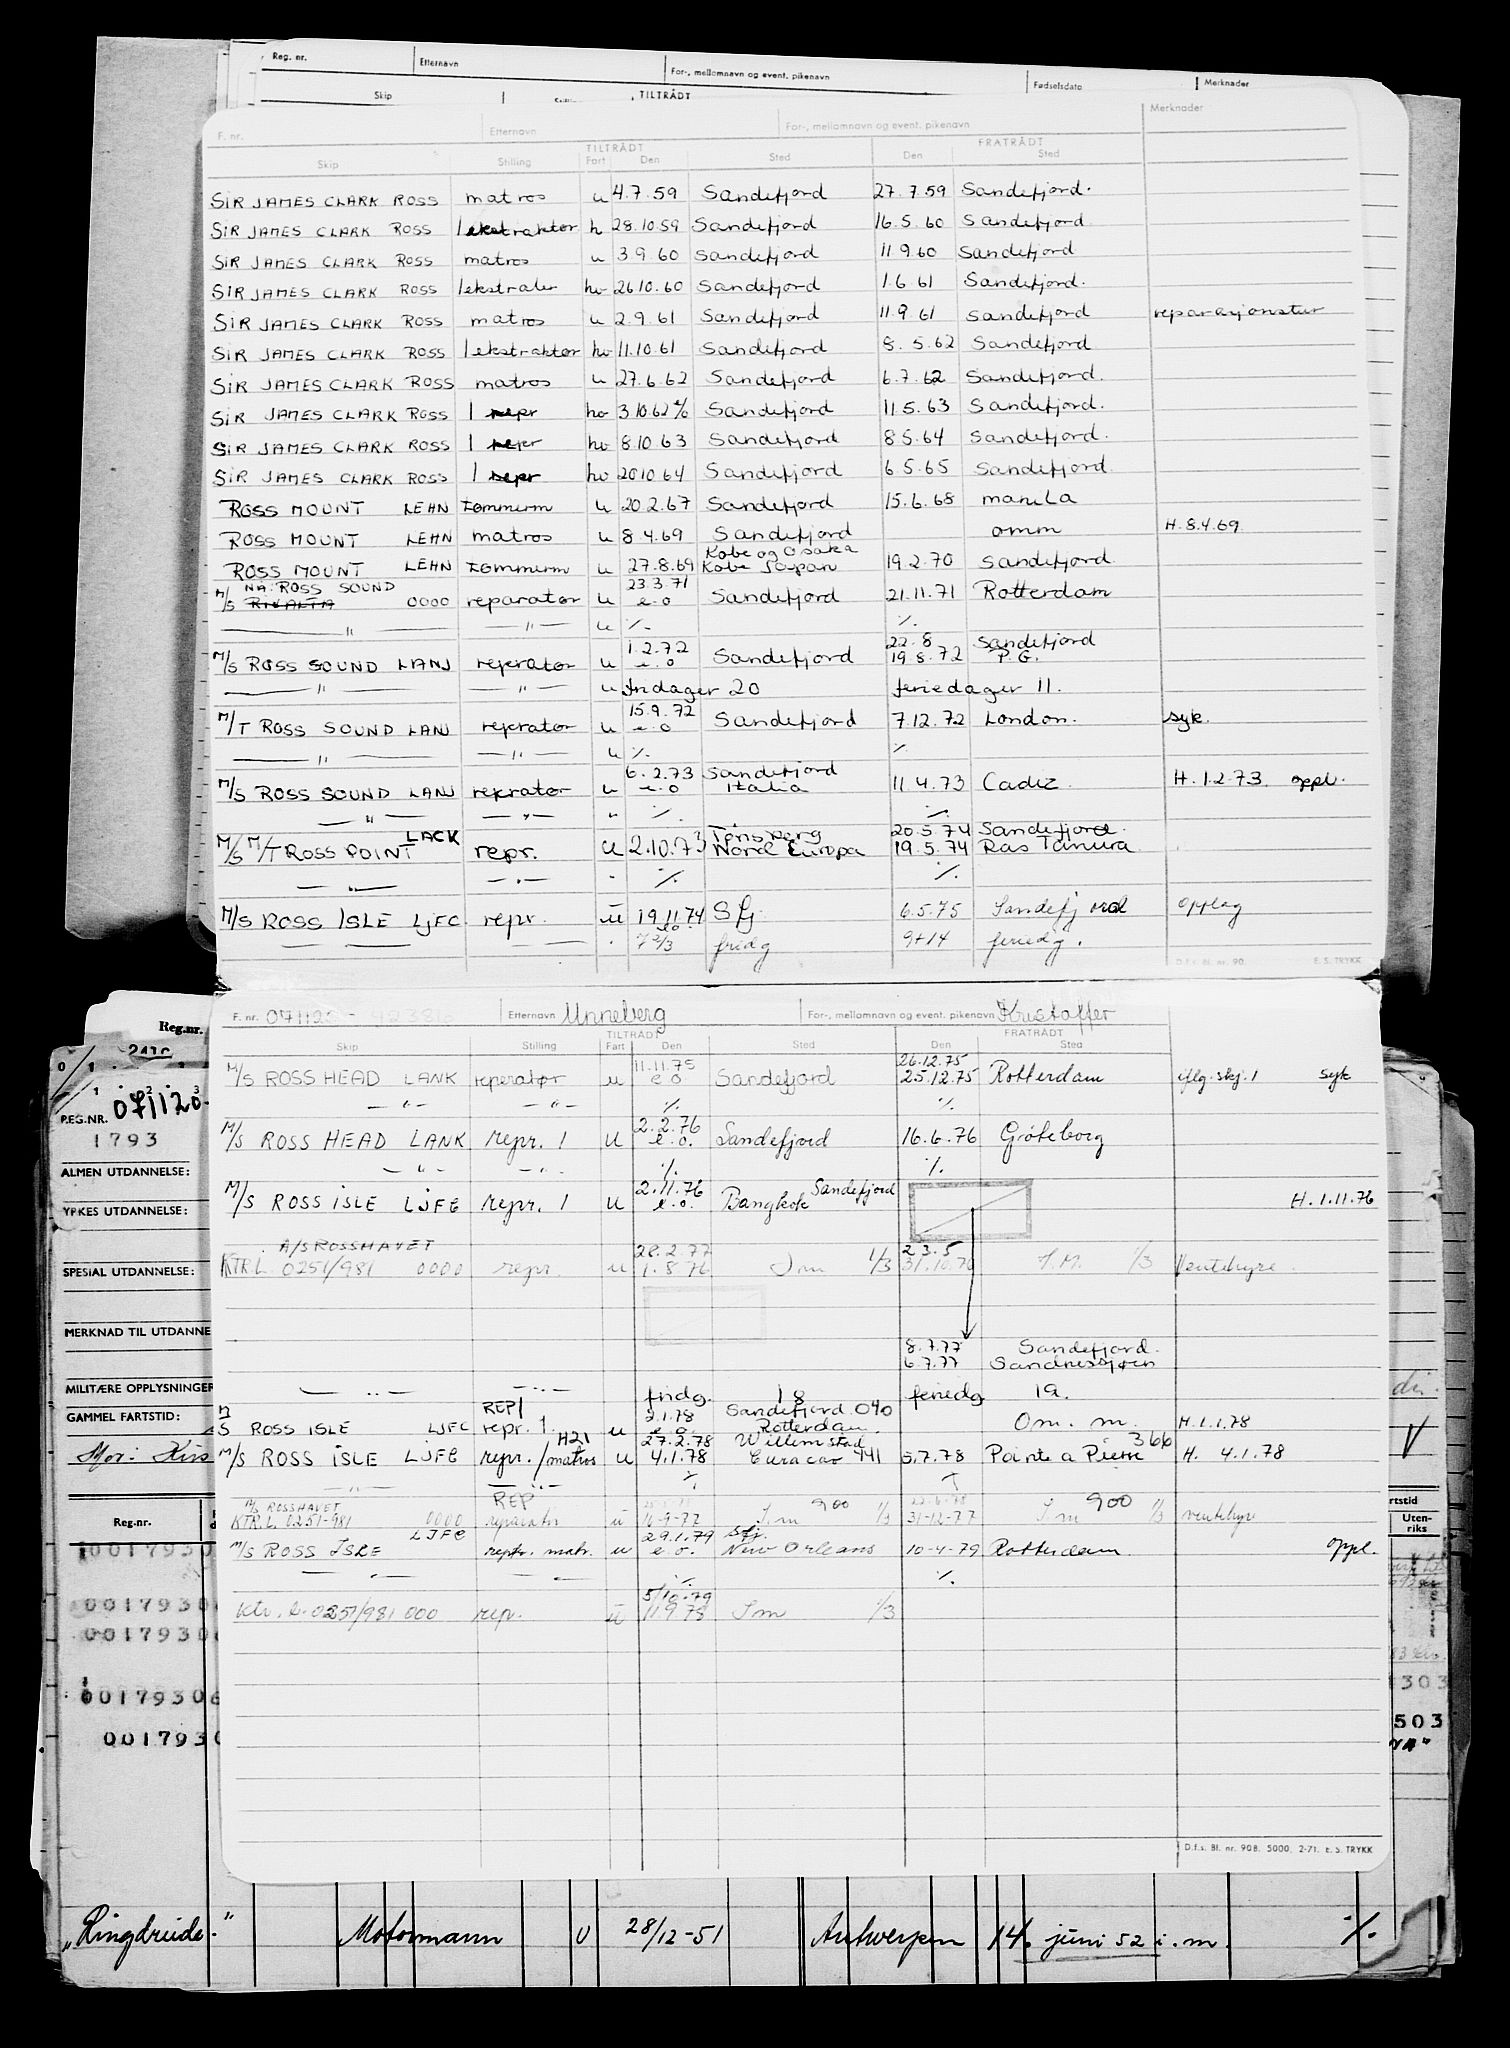 Reg. nr. Etternavn For-, mellomnavn og event. pikenavn Fødselsdato Merknader
Skip TILTRÅDT
F. nr. Etternavn For-, mellomnavn og event. pikenavn Merknader
TILTRÅDT FRATRÅDT
Skip Stilling Fart Den Sted Den Sted
SIR JAMES CLARK ROSS matros u 4.7.59 Sandefjord 27.7.59 Sandefjord.
SIR JAMES CLARK ROSS 1 ekstraktør h 28.10.59 Sandefjord 16.5.60 Sandefjord
SIR JAMES CLARK ROSS matros u 3.9.60 Sandefjord 11.9.60 Sandefjord
SIR JAMES CLARK ROSS 1 ekstraktør hv 26 10.60 Sandefjord 1.6 61 Sandefjord.
SIR JAMES CLARK ROSS matros u 2.9.61 Sandefjord 11.9.61 Sandefjord reparasjonstur
SIR JAMES CLARK ROSS 1 ekstraktør hv 11.10.61 Sandefjord 8.5.62 Sandefjord
SIR JAMES CLARK ROSS matros u 27.6.62 Sandefjord 6.7.62 Sandefjord.
SIR JAMES CLARK ROSS 1 repr hv 3.10.62 Sandefjord 11.5.63 Sandefjord.
SIR JAMES CLARK ROSS 1 repr hv 8.10.63 Sandefjord 8.5.64 Sandefjord.
SIR JAMES CLARK ROSS 1 repr hv 20 10.64 Sandefjord 6.5.65 Sandefjord.
ROSS MOUNT LEHN tømmerm u 20.2.67 Sandefjord 15.6.68 manila
ROSS MOUNT LEHN matros u 8.4.69 Sandefjord omm H.8.4.69
Kobe og Osaka
ROSS MOUNT LEHN tømmerm u 27.8.69 Kobe Japan 19.2.70 Sandefjord
NÅ: ROSS SOUND 23.3.71
M/S RINALTA 0000 reparatør u e.o Sandefjord 21.11.71 Rotterdam
— " — — " — u ./. ./.
1.2.72 22.8 Sandefjord
M/S ROSS SOUND LANJ reperatør u e.o Sandefjord 19.8.72 P.G.
— " — — " — u fridager 20 feriedager 11.
15.9.72
M/T ROSS SOUND LANJ reperatør u e.o Sandefjord 7.12.72 London. syk.
— " — — " — u ./. ./.
6.2.73 Sandefjord
M/S ROSS SOUND LANJ reperatør u e.o Italia 11.4.73 Cadiz. H.1.2.73. oppl.
— " — — " — " ./. ./.
LACK Tønsberg 20.5.74 Sandefjord.
M/S M/T ROSS POINT repr. u 2.10.73 Nord Europa 19.5.74 Ras Tanura
— " — — " — - ./. ./.
M/S ROSS ISLE LJFC repr. u 19.11.74 Sfj. 6.5.75 Sandefjord opplag
e.o.
— — — — . 7 2/3 fridg 9+14 feriedg.
D.f.s. Bl. nr. 90. E. S. TRYKK
F. nr. 071120 - 423816 Etternavn Unneberg For-, mellomnavn og event. pikenavn Kristoffer
TILTRÅDT FRATRÅDT
Skip Stilling Fart Den Sted Den Sted
11.11.75 26.12.75
M/S ROSS HEAD LANK reperatør u e.o Sandefjord 25.12.75 Rotterdam iflg. skj. 1 syk
— " — — " — ./. ./.
2.2.76
M/S ROSS HEAD LANK repr. 1 u e.o. Sandefjord 16.6.76 Gøteborg
— " — — " — ./. ./.
2.11.76 Sandefjord
M/S ROSS ISLE LJFC repr. 1 u e.o. Bangkok H.1.11.76
A/S ROSSHAVET 28.2.77 23.5
KTR.L. 0251/981 0000 repr. u 1.8.76 Im 1/3 31.10.76 I.M. 1/3 Ventehyre.
8.7.77 Sandefjord.
6.7.77 Sandnessjøen
— " — — " — fridg. 18 feriedg 19.
REP/ 2.1.78 Sandefjord 040
M/S ROSS ISLE LJFC repr. 1 u e.o. Rotterdam. Om. m. H.1.1.78
H21 27.2.78 Willemstad 366
M/S ROSS ISLE LJFC repr./matros u 4.1.78 Curacao 441 5.7.78 Pointe a Pierre H. 4.1.78
— " — — " — ./.
M/S ROSSHAVET REP 900 900
KTR.L. 0251-981 0000 reparatør u 10-9-77 I.m 1/3 31-12-77 I m 1/3 ventehyre
LJFC 29.1.79 Sfj.
M/S ROSS ISLE repr. matr. u e.o. New Orleans 10-4-79 Rotterdam. oppl.
— " — — " — ./. ./.
5/10.79
Ktr. l. 0251/981 000 rep. u 11.9.78 Im 1/3
D.f.s. Bl. nr. 908. 5000. 2-71. E. S. TRYKK
Reg.nr.
REG.NR. 071120.
1793
ALMEN UTDANNELSE:
YRKES UTDANNELSE:
SPESIAL UTDANNELSE:
MERKNAD TIL UTDANNE
MILITÆRE OPPLYSNINGER
GAMMEL FARTSTID:
Mor: Kirs
Reg.nr. rtstid
Uten-
riks
0017930
0017930
0017930
0017930 303
0017930 503
"Ringdruide" Motormann U 28/12-51 Antwerpen 14. juni 52 i.m. ./.